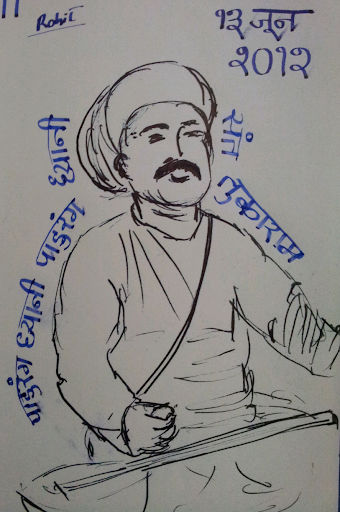 Rohit
१३ जून
२०१२
संत तुकाराम
पाडुरंग ध्यानी पाडुरंग ध्यानी